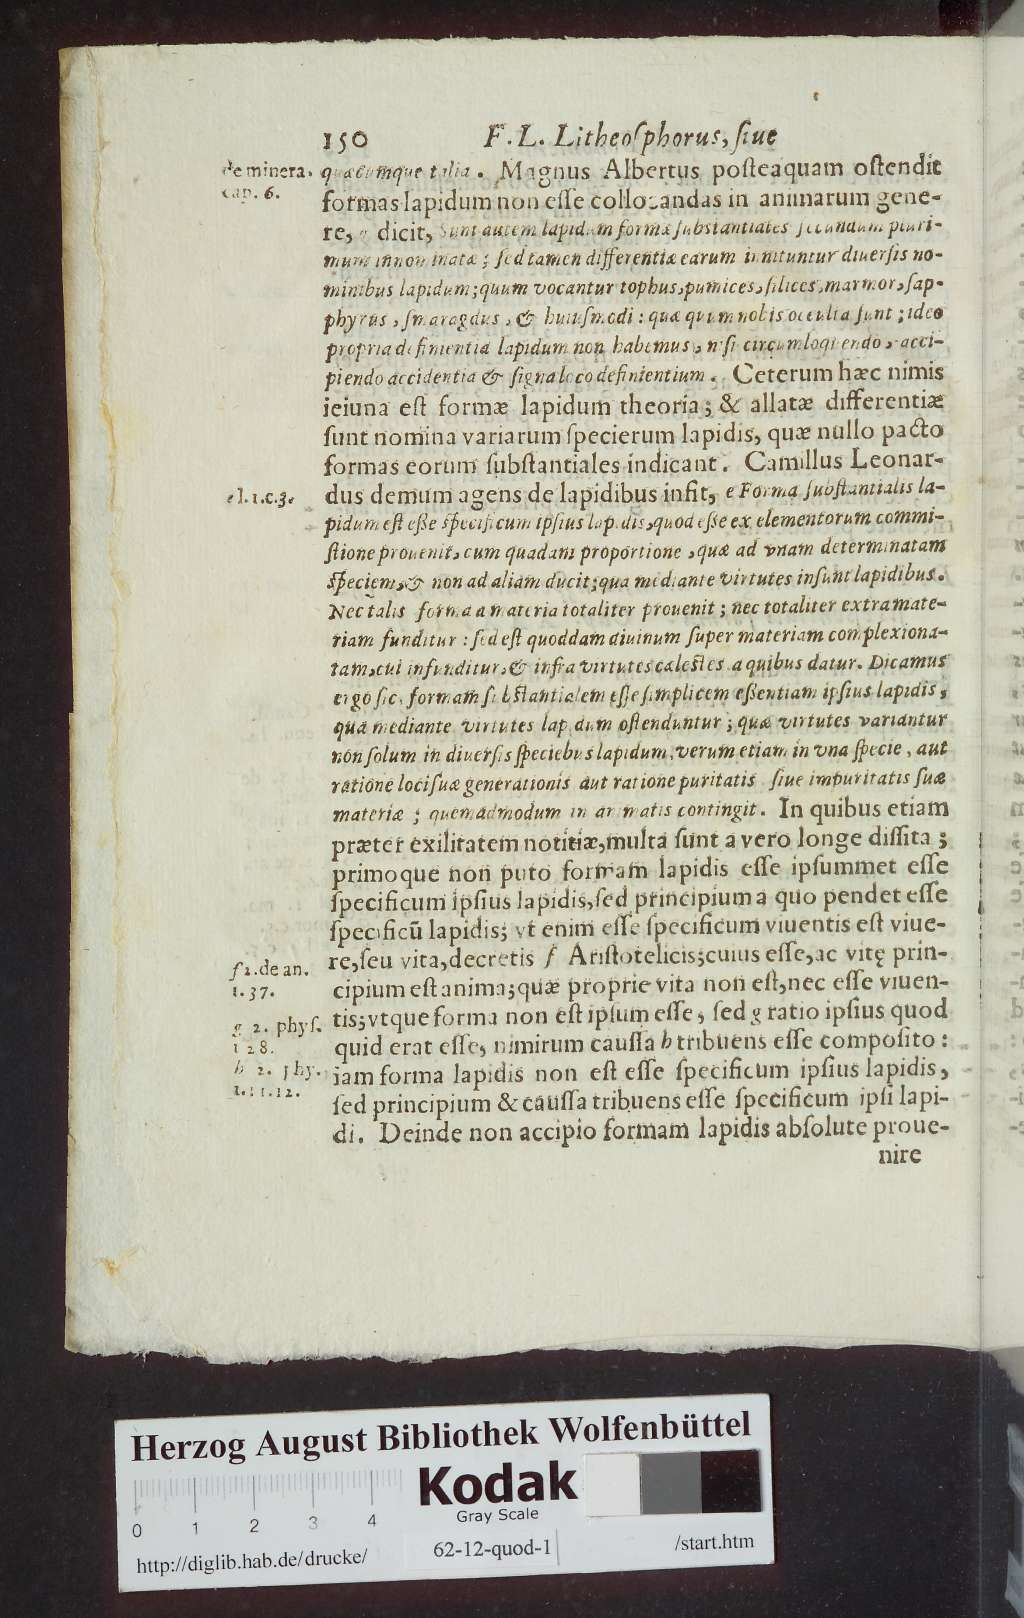 150 F. L. Litheoſphorus, ſiue
de minera. quæcumque talia. Magnus Albertus poſteaquam oſtendit
cap. 6. formas lapidum non eſſe collocandas in animarum gene-
re, dicit, Sunt autem lapidum formæ ſubſtantiales ſecundum pluri-
mum innominatæ; ſed tamen differentiæ earum innituntur diuerſis no-
minibus lapidum; quum vocantur tophus, pumices, ſilices, marmor, ſap-
phyrus, ſmaragdus, & huiuſmodi: quæ quum nobis occulta ſunt; ideo
propria definientia lapidum non habemus, niſi circumloquendo, acci-
piendo accidentia & ſigna loco definientium. Ceterum hæc nimis
ieiuna eſt formæ lapidum theoria; & allatæ differentiæ
ſunt nomina variarum ſpecierum lapidis, quæ nullo pacto
formas eorum ſubſtantiales indicant. Camillus Leonar-
e l. 1. c. 3. dus demum agens de lapidibus infit, e Forma ſubſtantialis la-
pidum eſt eſſe ſpecificum ipſius lapidis, quod eſſe ex elementorum commi-
ſtione prouenit, cum quadam proportione, quæ ad vnam determinatam
ſpeciem, & non ad aliam ducit; qua mediante virtutes inſunt lapidibus.
Nec talis forma a materia totaliter prouenit; nec totaliter extra mate-
riam funditur: ſed eſt quoddam diuinum ſuper materiam complexiona-
tam, cui infunditur, & infra virtutes cæleſtes a quibus datur. Dicamus
ergo ſic, formam ſubſtantialem eſſe ſimplicem eſſentiam ipſius lapidis,
qua mediante virtutes lapidum oſtenduntur; quæ virtutes variantur
non ſolum in diuerſis ſpeciebus lapidum, verum etiam in vna ſpecie, aut
ratione loci ſuæ generationis aut ratione puritatis ſiue impuritatis ſuæ
materiæ; quemadmodum in animatis contingit. In quibus etiam
præter exilitatem notitiæ, multa ſunt a vero longe diſſita;
primoque non puto formam lapidis eſſe ipſummet eſſe
ſpecificum ipſius lapidis, ſed principium a quo pendet eſſe
ſpecificū lapidis; vt enim eſſe ſpecificum viuentis eſt viue-
f 2. de an. re, ſeu vita, decretis f Ariſtotelicis; cuius eſſe, ac vitę prin-
t. 37. cipium eſt anima; quæ proprie vita non eſt, nec eſſe viuen-
g 2. phyſ. tis; vtque forma non eſt ipſum eſſe, ſed g ratio ipſius quod
t 28. quid erat eſſe, nimirum cauſſa h tribuens eſſe compoſito:
h 2. phy. iam forma lapidis non eſt eſſe ſpecificum ipſius lapidis,
t. 11. 12. ſed principium & cauſſa tribuens eſſe ſpecificum ipſi lapi-
di. Deinde non accipio formam lapidis abſolute proue-
nire
Herzog August Bibliothek Wolfenbüttel
Kodak
Gray Scale
0 1 2 3 4
http://diglib.hab.de/drucke/ 62-12-quod-1 /start.htm